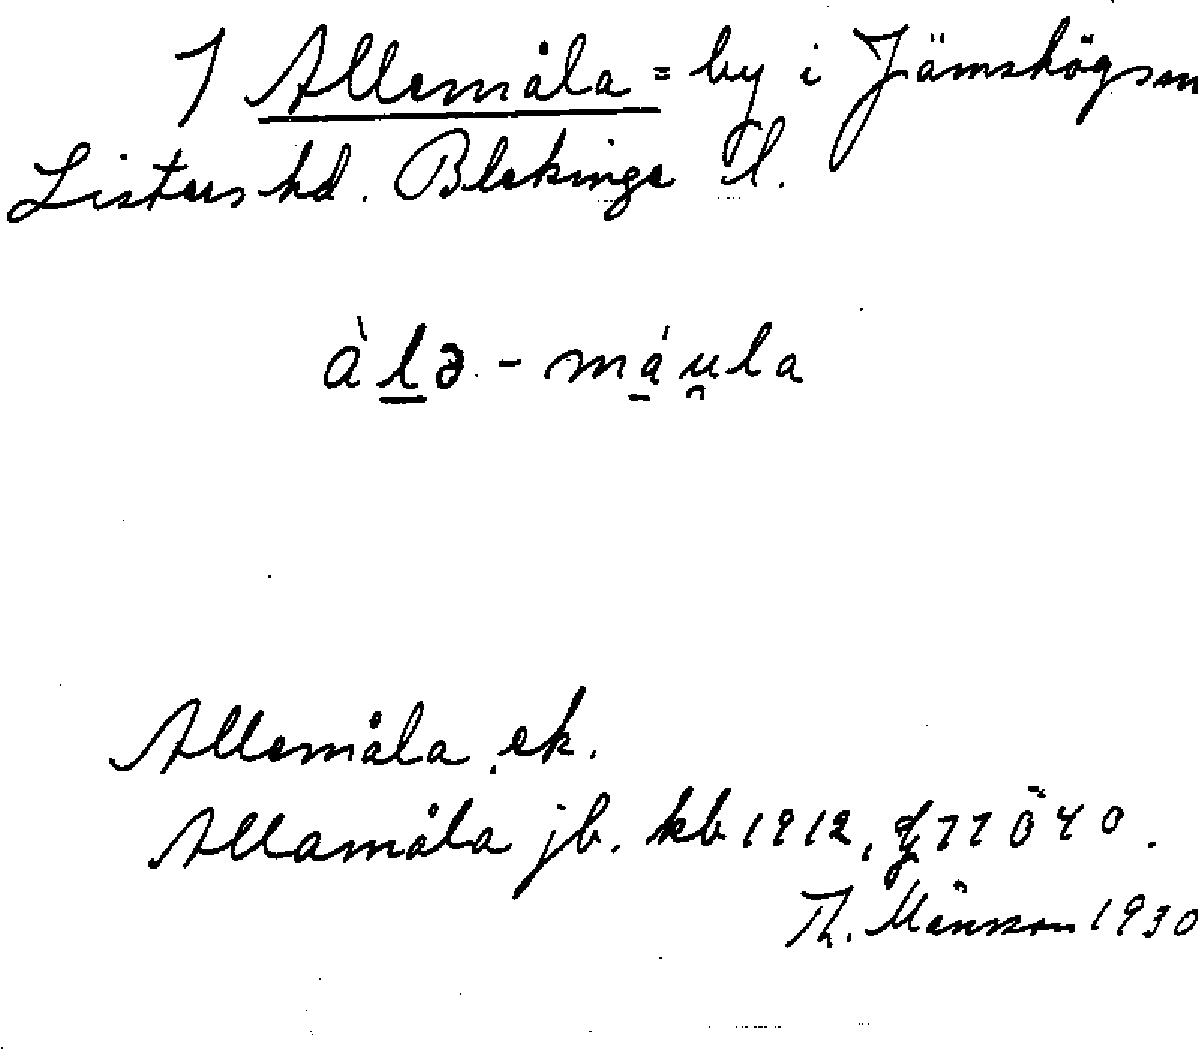 1 Allemåla = by i Jämshögs sn
Listers hd. Blekinge l.
àlə-máu̯la
Allemåla ek.
Allamåla jb. kb 1912, 77 ö 40.
Th. Månsson 1930